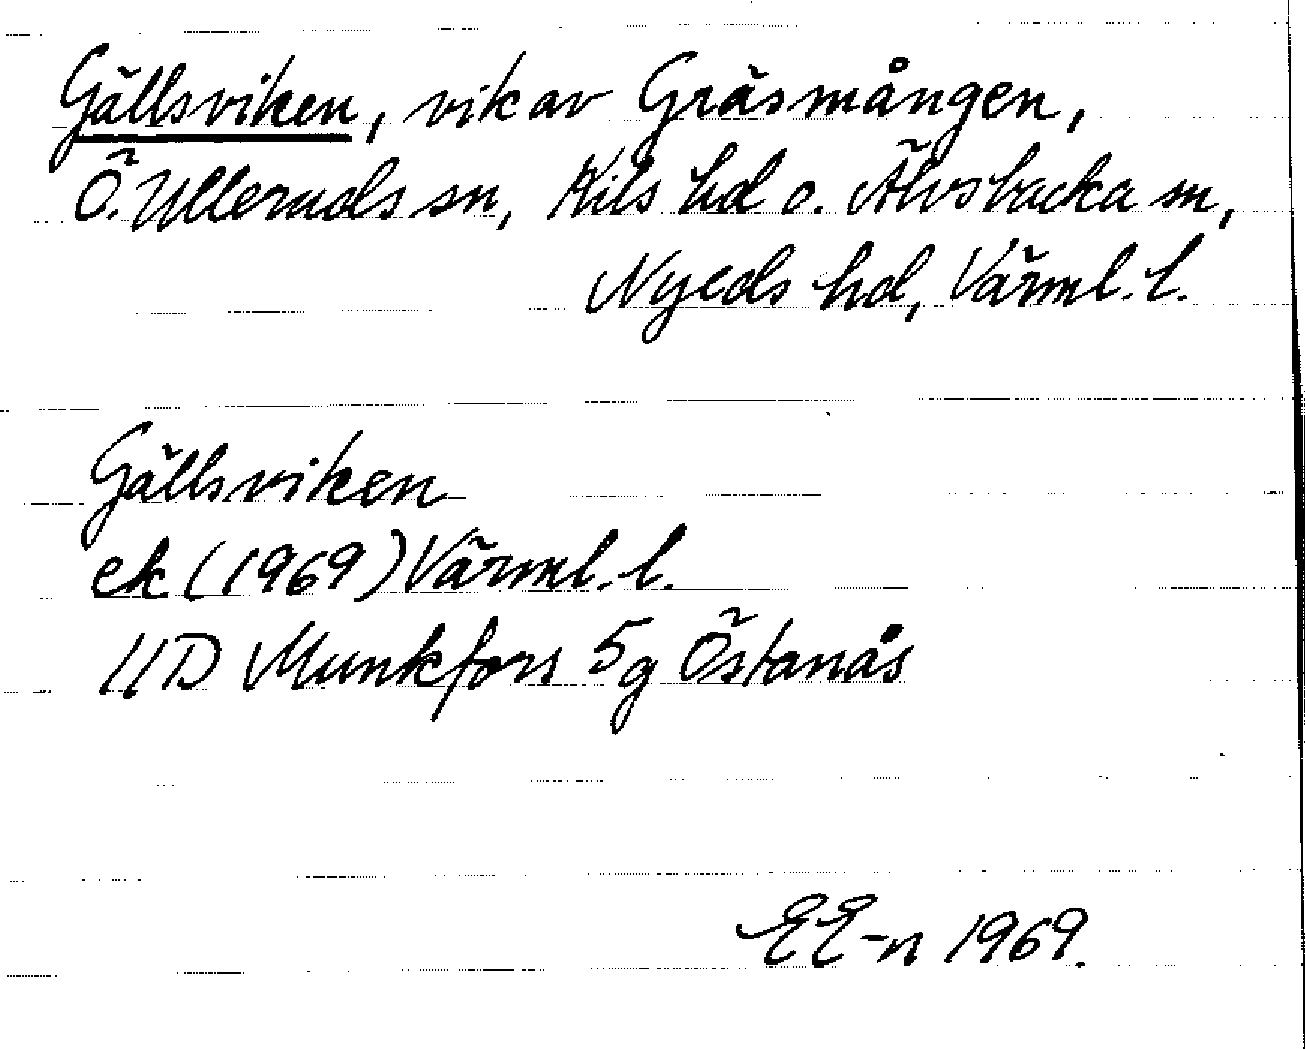 Gällsviken, vik av Gräsmången,
Ö. Ulleruds sn, Kils hd o. Älvsbacka sn,
Nyeds hd, Värml. l.
Gällsviken
ek (1969) Värml. l.
11D Munkfors 5g Östanås
EE-n 1969.